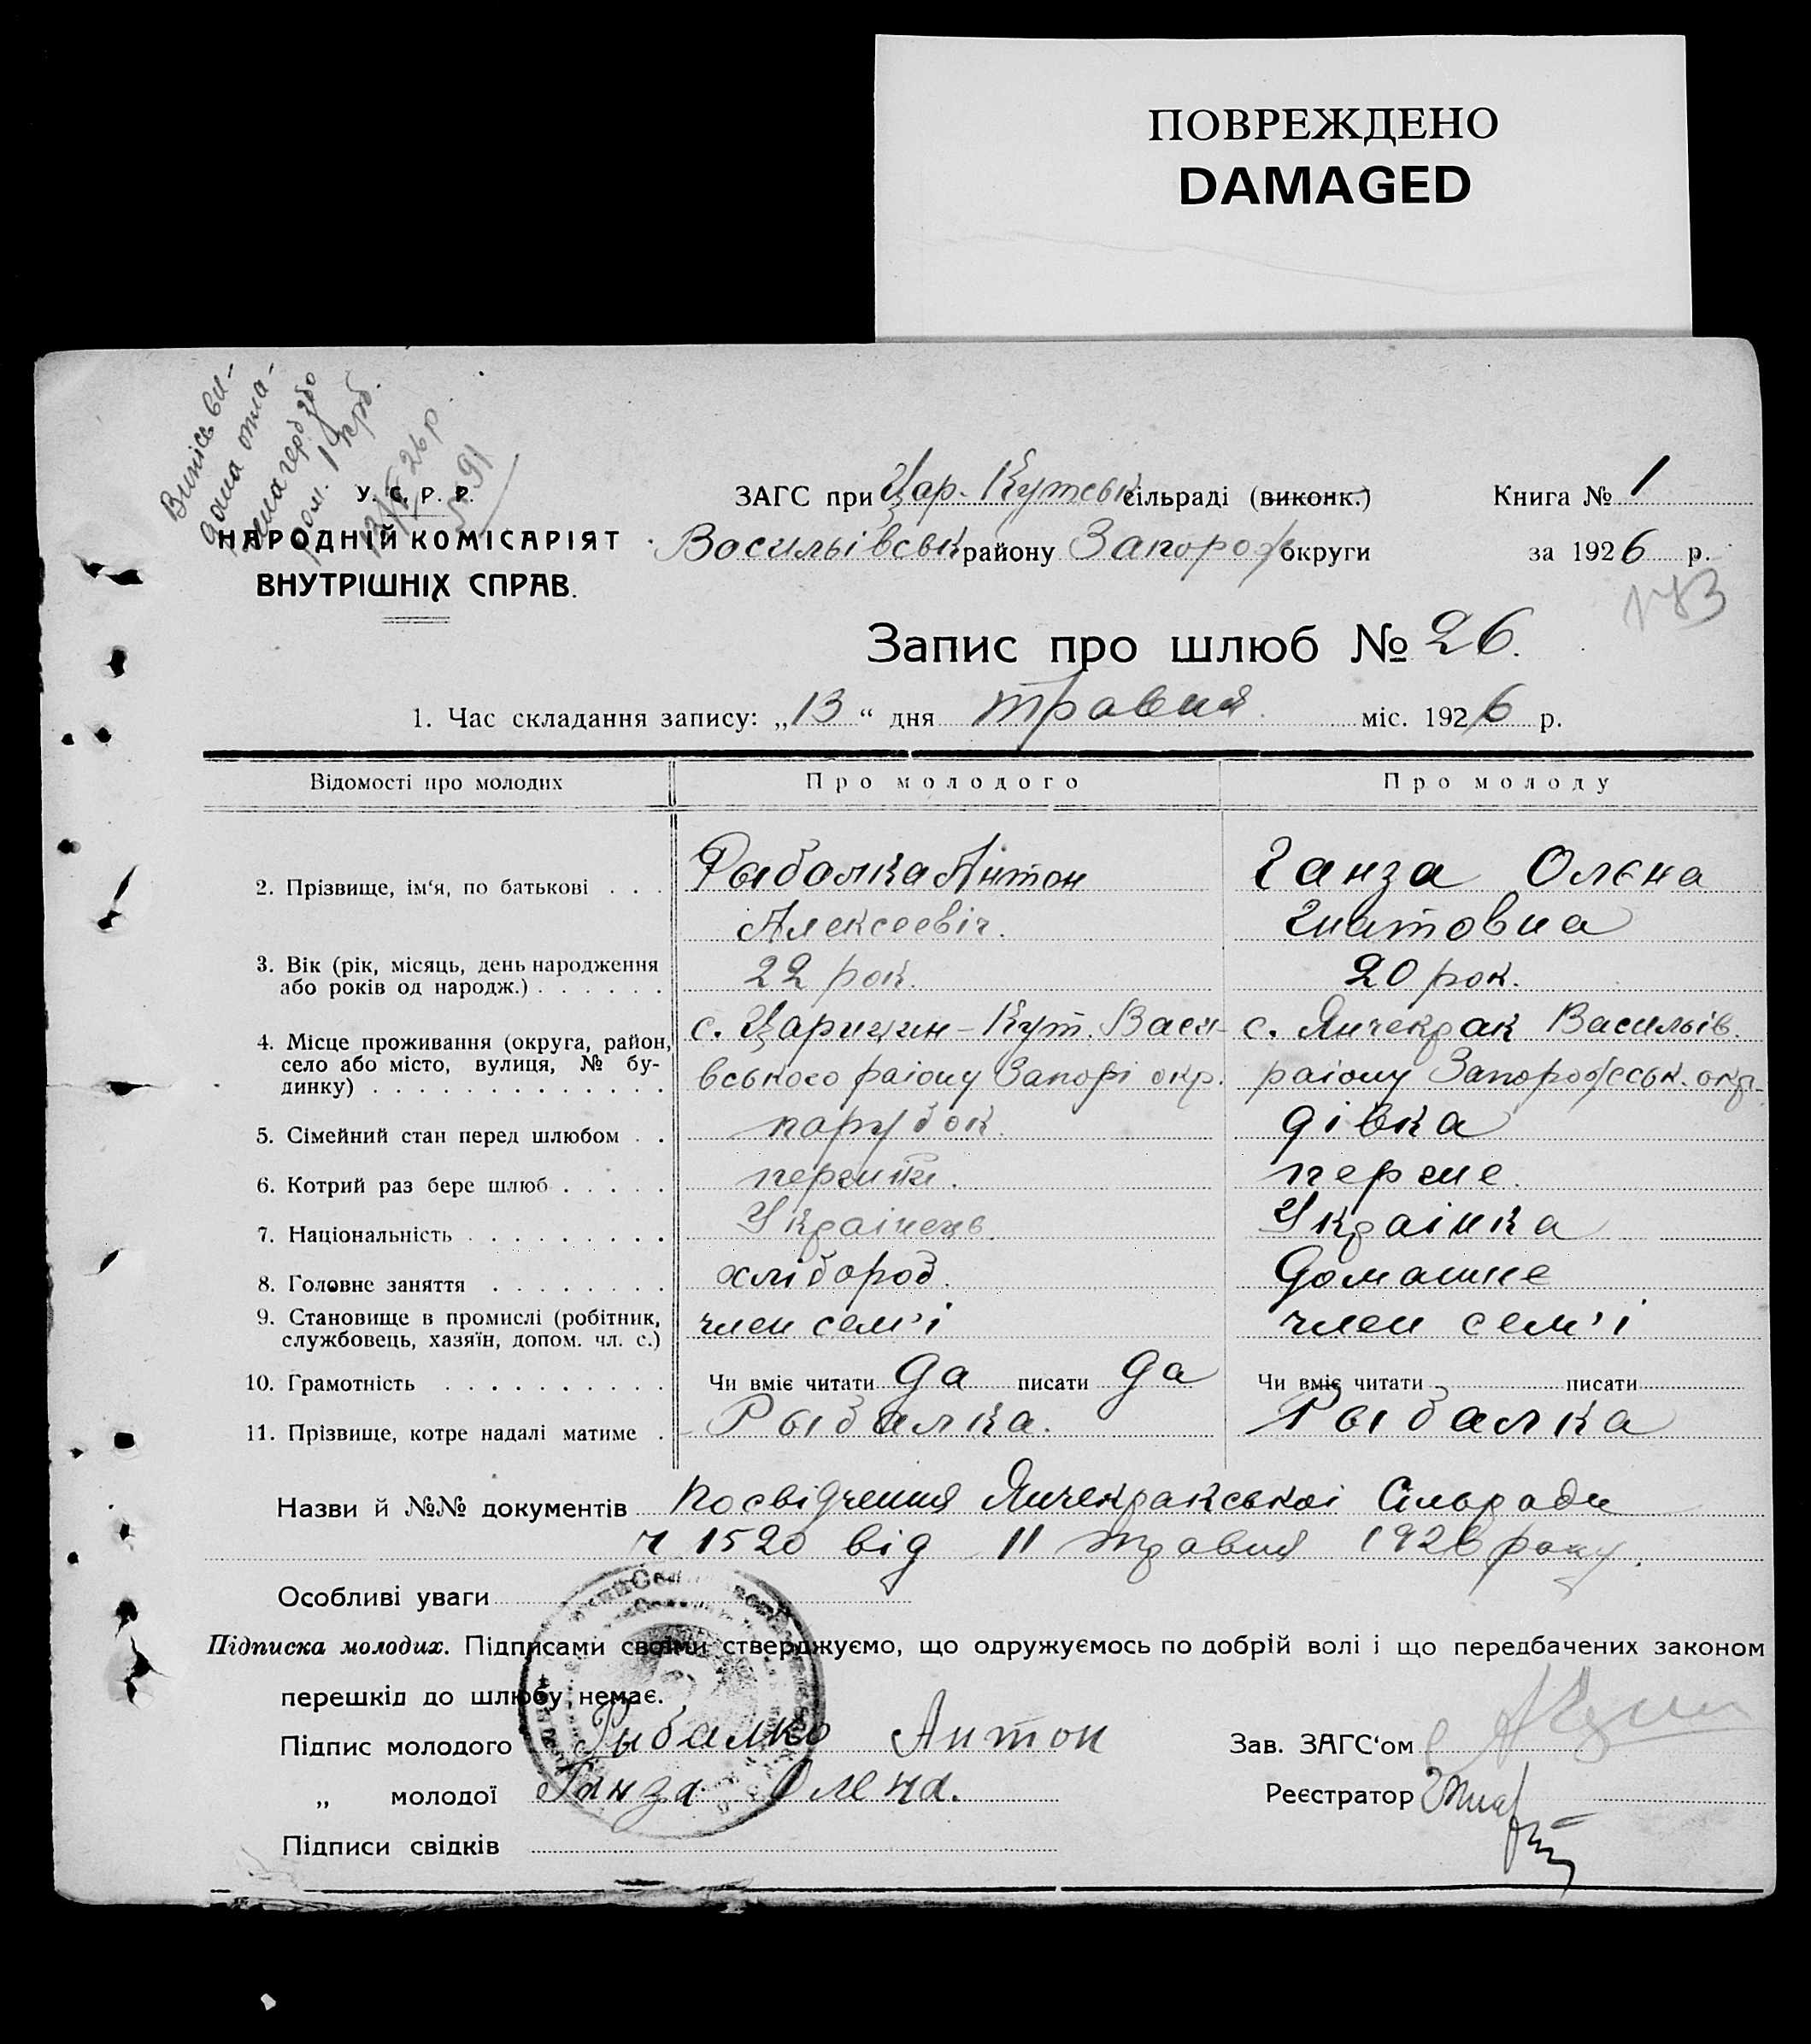 ПОВРЕЖДЕНО
DAMAGED
Випісь ви-
дана опла-
У. С. Р. Р.
НАРОДНІЙ КОМІСАРІЯТ
ВНУТРІШНІХ СПРАВ.
ЗАГС при Цар. Кутськ сільраді (виконк.) Книга № 1
Васильівськ району Запорож округи за 1926 р.
Запис про шлюб № 26.
1. Час складання запису: „13“ дня травня міс. 1926 р.
Відомості про молодих Про молодого Про молоду
2. Прізвище, ім‘я, по батькові . . . Рыбалка Антон Ганза Олєна
Алексеевіч. Гнатовна
3. Вік (рік, місяць, день народження 22 рок. 20 рок.
або років од народж.) . . . . . .
4. Місце проживання (округа, район, с. Царицин-Кут. Васи- с. Янчекрак Васильів.
село або місто, вулиця, № бу- вського раіону Запорі окр. раіону Запорожськ. окр.
динку) . . . . . . . . . . . . .
5. Сімейний стан перед шлюбом . . парубок. дівка
6. Котрий раз бере шлюб . . . . . перший. перше.
7. Національність . . . . . . . . . Украінець. Украінка
8. Головне заняття . . . . . . . . хлібороб. Домашнє
9. Становище в промислі (робітник, член сем’і член сем’і
службовець, хазяїн, допом. чл. с.)
10. Грамотність . . . . . . . . . . Чи вміє читати да писати да Чи вміє читати писати
11. Прізвище, котре надалі матиме . Рыбалка. Рыбалка
Назви й №№ документів посвідчення Янчекракськоі Сільради
ч 1520 від 11 травня 1926 року.
Особливі уваги
Підписка молодих. Підписами своїми стверджуємо, що одружуємось по добрій волі і що передбачених законом
перешкід до шлюбу немає.
Підпис молодого Рыбалко Антон Зав. ЗАГС‘ом
„ молодої Ганза Олена. Реєстратор
Підписи свідків